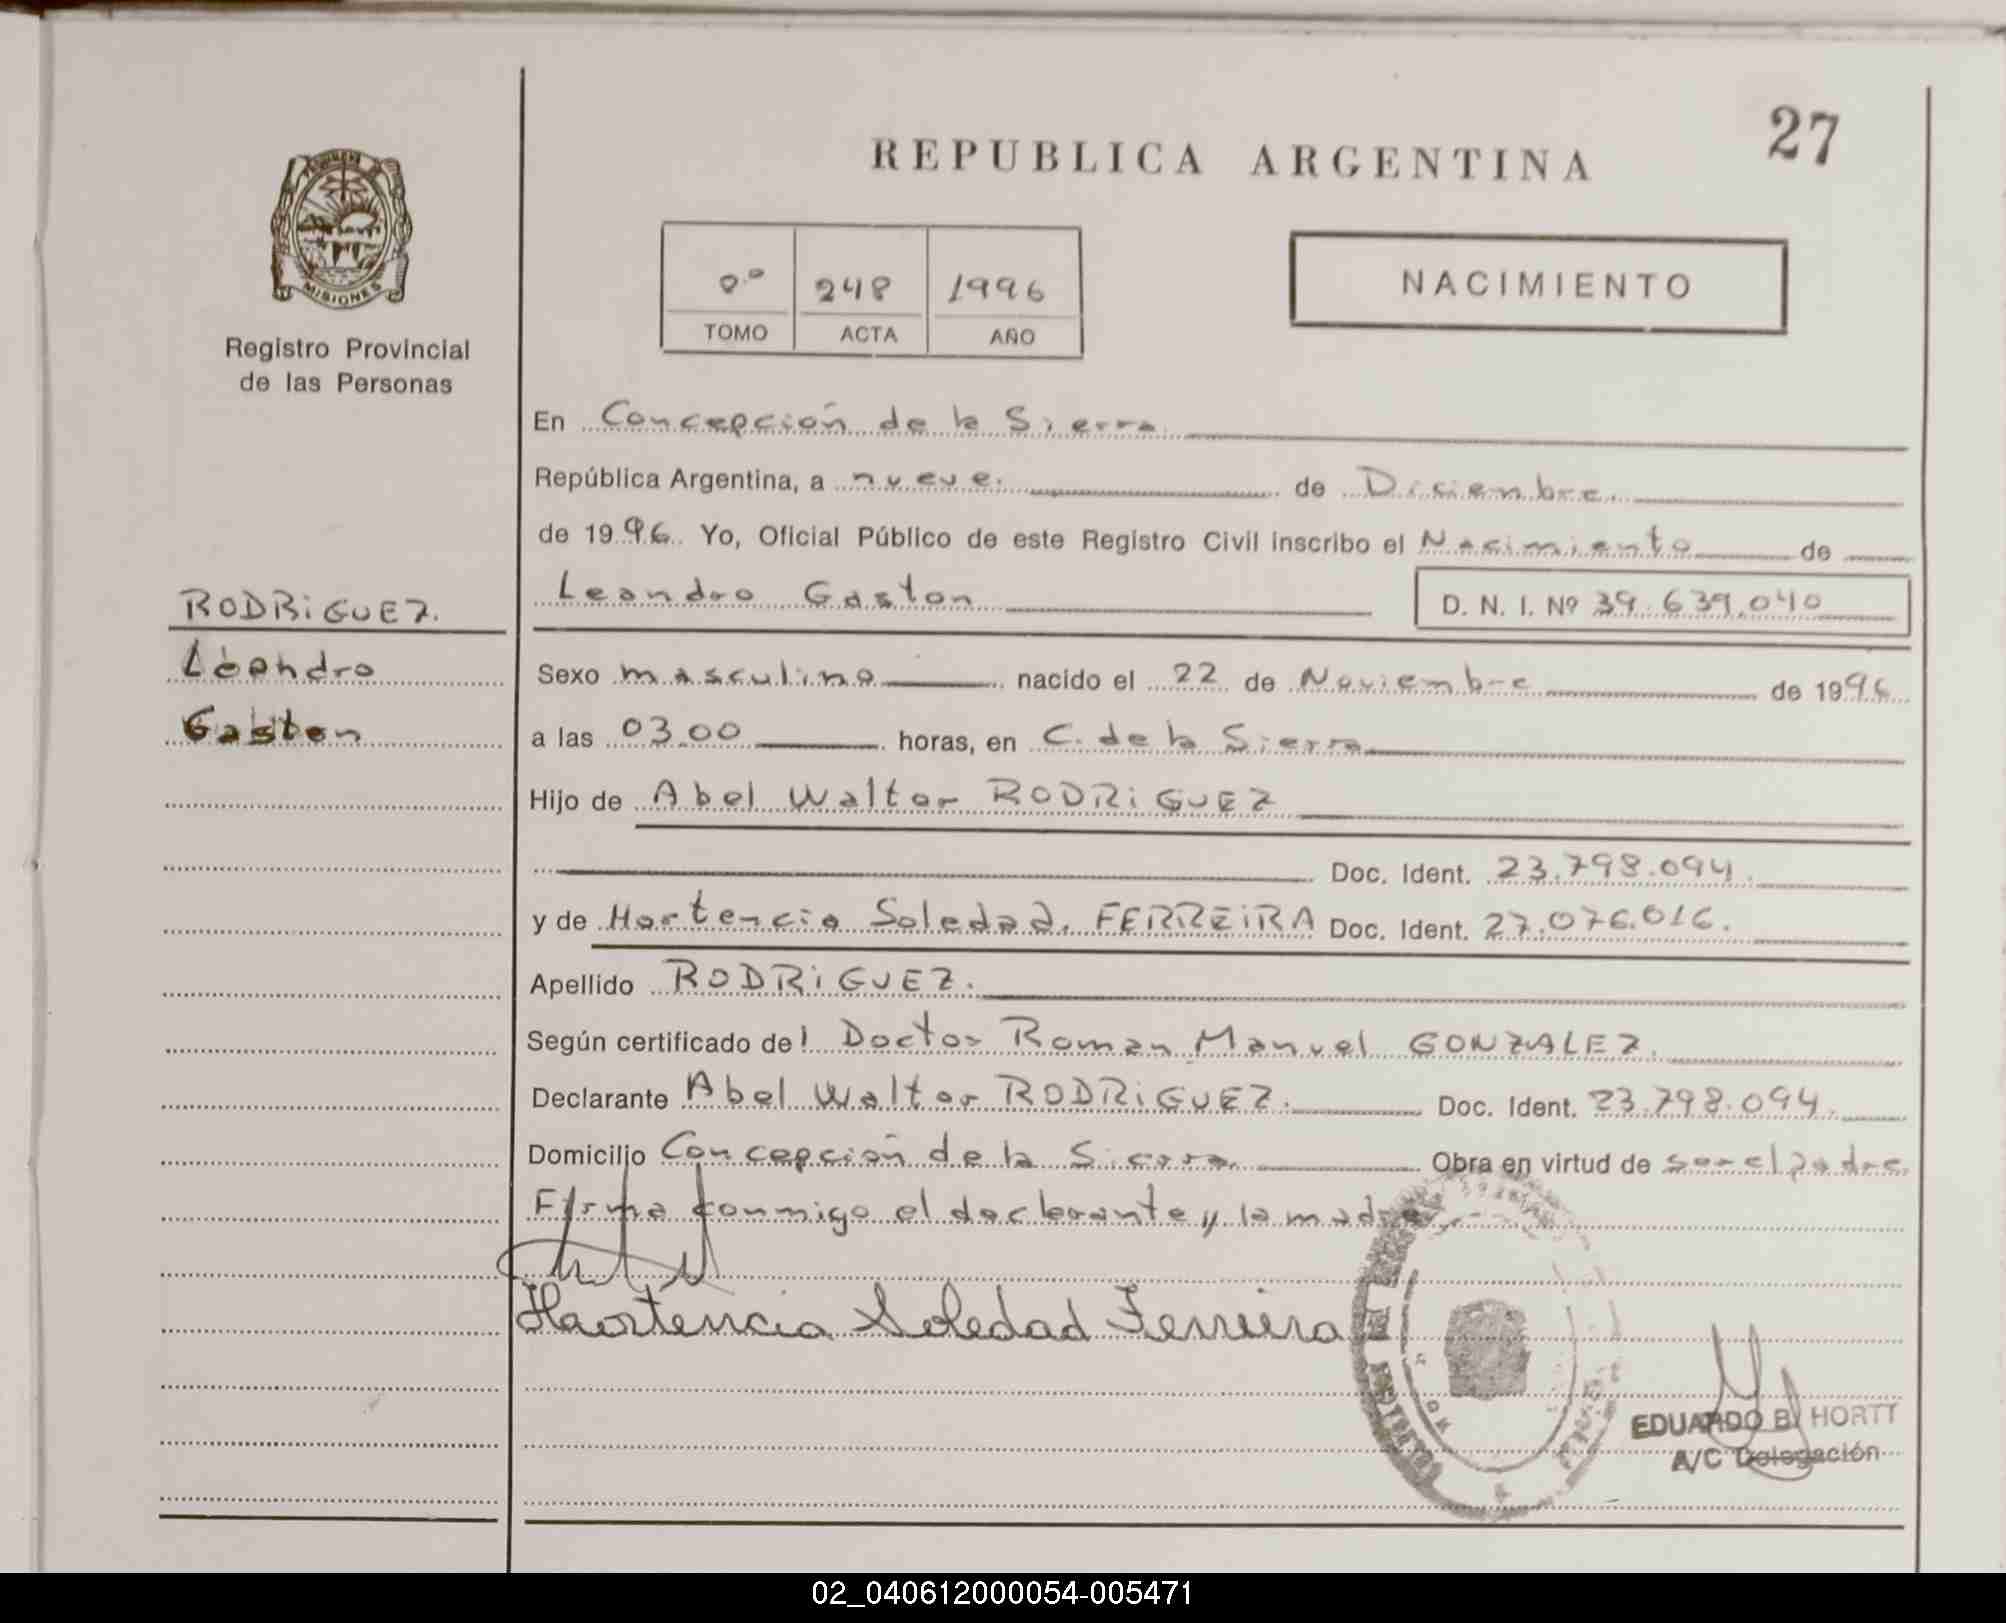 27
REPUBLICA ARGENTINA
MISIONES
Registro Provincial
de las Personas
248 1996
TOMO ACTA AÑO
NACIMIENTO
En Concepción de la Sierra
República Argentina, a nueve. de Diciembre.
de 1996. Yo, Oficial Público de este Registro Civil inscribo el Nacimiento de
Leandro Gaston
D. N. I. Nº 39.639.040
RODRiGUEZ.
Leandro
Gaston
Sexo masculino nacido el 22 de Noviembre de 1996
a las 03.00 horas, en C. de la Sierra
Hijo de Abel Walter RODRiGUEZ
Doc. Ident. 23.798.094.
y de Hortencia Soledad. FERREiRA Doc. Ident. 27.076.016.
Apellido RODRiGUEZ.
Según certificado del Doctor Roman Manuel GONZALEZ.
Declarante Abel Walter RODRiGUEZ. Doc. Ident. 23.798.094.
Domicilio Concepción de la Sierra. Obra en virtud de ser el padre
Firma conmigo el declarante y la madre
Hortencia Soledad Ferreira
EDUARDO B. HORTT
A/C Delegación
02_040612000054-005471